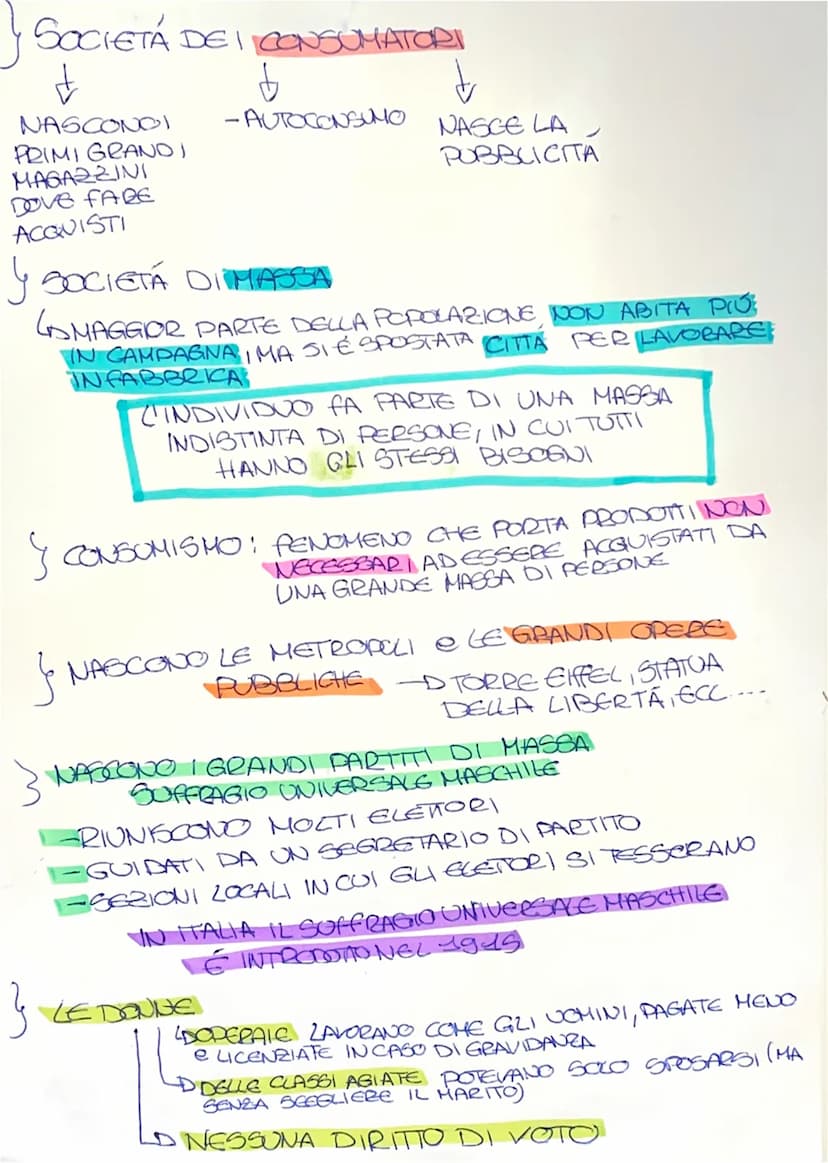 SOCIETÁ DEI CONSUMATORI
NASCONO I
PRIMI GRANDI
MAGAZZINI
DOVE FARE
ACQUISTI
- AUTOCONSUMO
NASCE LA
PUBBLICITÁ
SOCIETÁ DI MASSA
MAGGIOR PARTE DELLA POPOLAZIONE NON ABITA PIÚ
IN CAMPAGNA, MA SI É SPOSTATA CITTÁ PER LAVORARE
IN FABBRICA
L'INDIVIDUO FA PARTE DI UNA MASSA
INDISTINTA DI PERSONE, IN CUI TUTTI
HANNO GLI STESSI BISOGNI
CONSUMISMO: FENOMENO CHE PORTA PRODOTTI NON
NECESSARI AD ESSERE ACQUISTATI DA
UNA GRANDE MASSA DI PERSONE
NASCONO LE METROPOLI e LE GRANDI OPERE
PUBBLICHE → TORRE EIFFEL, STATUA
DELLA LIBERTÁ, ECC....
NASCONO I GRANDI PARTITI DI MASSA
SUFFRAGIO UNIVERSALE MASCHILE
- RIUNISCONO MOLTI ELETTORI
- GUIDATI DA UN SEGRETARIO DI PARTITO
- SEZIONI LOCALI IN CUI GLI ELETORI SI TESSERANO
IN ITALIA IL SUFFRAGIO UNIVERSALE MASCHILE
É INTRODOTTO NEL 1919
LE DONNE
OPERAIE LAVORANO COME GLI UOMINI, PAGATE MENO
e LICENZIATE IN CASO DI GRAVIDANZA
DELLE CLASSI AGIATE POTEVANO SOLO SPOSARSI (MA
SENZA SCEGLIERE IL MARITO)
NESSUNA DIRITTO DI VOTO